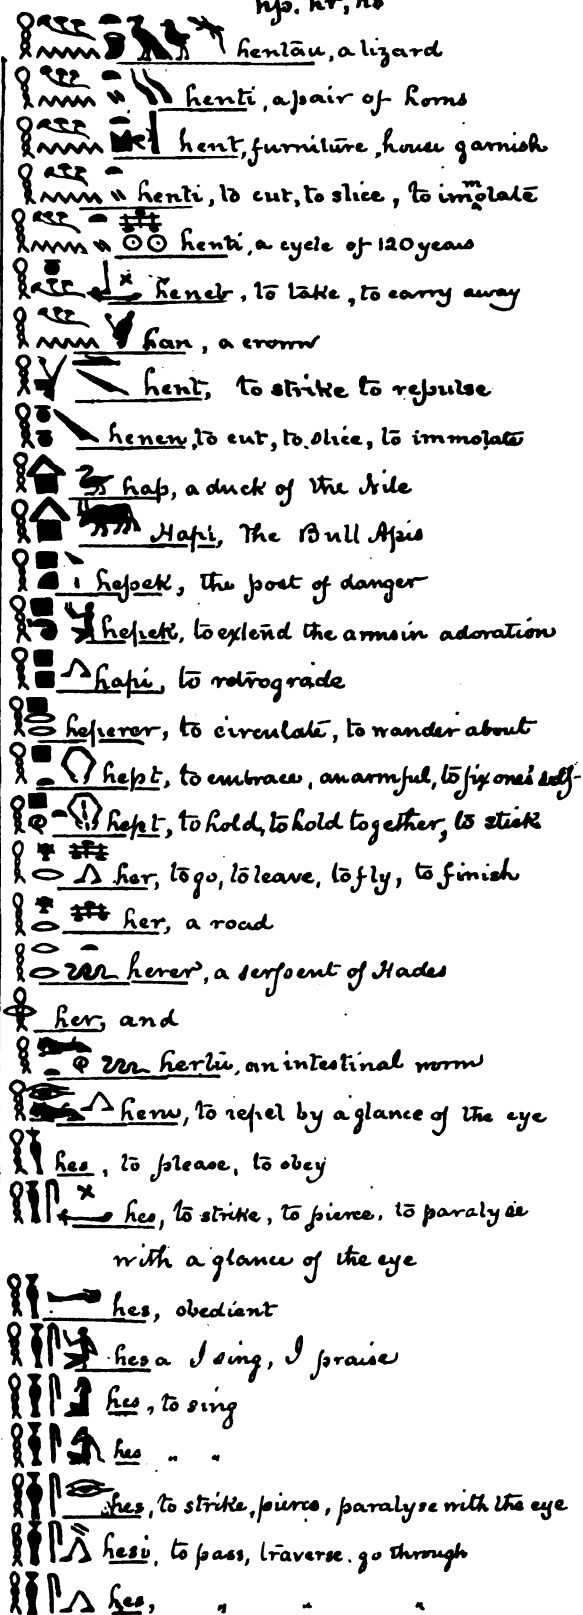 hp. hr, hs
hentau, a lizard
henti, a pair of horns
hent, furniture, house garnish
henti, to cut, to slice, to immolate
henti, a cycle of 120 years
heneb, to take, to carry away
han, a crown
hent, to strike to repulse
henen, to cut, to slice, to immolate
hap, a duck of the Nile
Hapi, the Bull Apis
hepek, the post of danger
hepek, to extend the arms in adoration
hapi, to retrograde
heperer, to circulate, to wander about
hept, to embrace, an armful, to fix one's self-
hept, to hold, to hold together, to stick
her, to go, to leave, to fly, to finish
her, a road
herer, a serpent of Hades
her, and
hertu, an intestinal worm
heru, to repel by a glance of the eye
hes, to please, to obey
hes, to strike, to pierce, to paralyse
with a glance of the eye
hes, obedient
hes a I sing, I praise
hes, to sing
hes " "
hes, to strike, pierce, paralyse with the eye
hesi, to pass, traverse, go through
hes, " " "